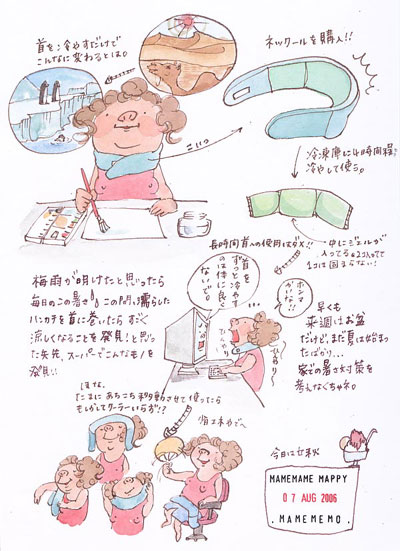 首を冷やすだけで
こんなに変わるとは。
ネックールを購入!!
こいつ
冷凍庫に4時間程
冷やして使う。
長時間首への使用はダメ!!
中にジェルが
入ってる
1コは固まらない!
梅雨が明けたと思ったら
毎日のこの暑さ!この間、濡らした
ハンカチを首に巻いたらすごく
涼しくなることを発見!と思っ
た矢先、スーパーでこんなモノを
発見!!
首を
ずっと冷やす
のは体に良く
ないで。
ホンマ
かいな!
ひんやり
早くも
来週はお盆
だけど、まだ夏は始まっ
たばかり…
家での暑さ対策を
考えなくちゃネ。
ほな、
たまにあちこち移動させて使ったら
もしかしてクーラーいらず!?
省エネやで〜
今日は立秋
MAMEMAME MAPPY
07 AUG 2006
.MAMEMEMO.